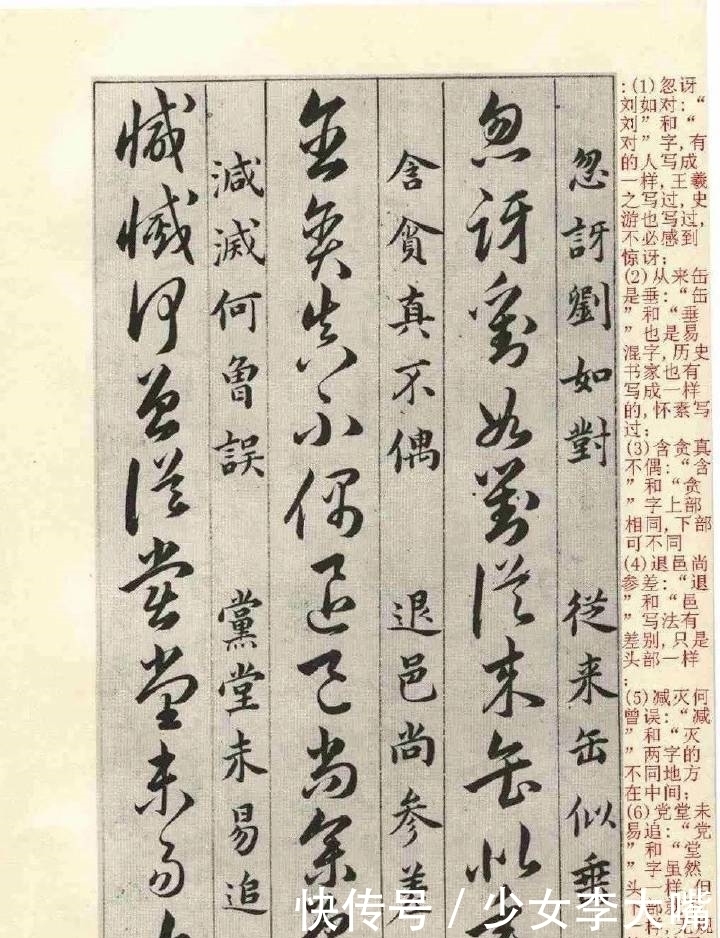 忽訝劉如對 從来缶似垂
忽訝劉如對從来缶似
含貪真不偶 退邑尚参差
含貪真不偶退邑尚参
減滅何曽誤 黨堂未易追
減滅何曽誤黨堂未易
:(1)忽讶
刘如对:“
刘”和“
对”字,有
的人写成
一样,王羲
之写过,史
游也写过,
不必感到
惊讶;
(2)从来缶
是垂:“缶
”和“垂
”也是易
混字,历史
书家也有
写成一样
的,怀素写
过;
(3)含贪真
不偶:“含
”和“贪
”字上部
相同,下部
可不同
(4)退邑尚
参差:“退
”和“邑
”写法有
差别,只是
头部一样
;
(5)减灭何
曾误:“减
”和“灭
”两字的
不同地方
在中间;
(6)党堂未
易追:“党
”和“堂
”字虽然
头一样,但
快传号/少女李大嘴